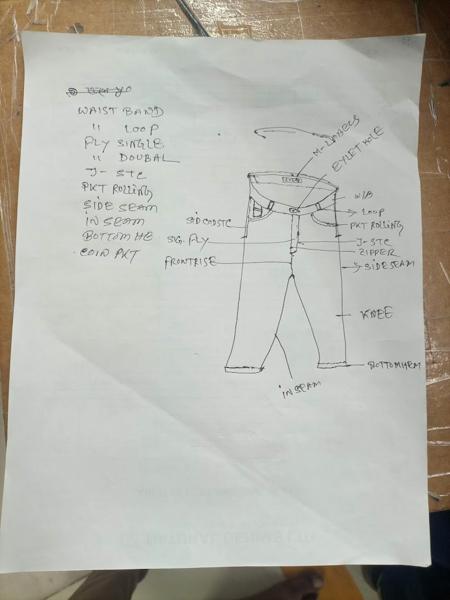 WAIST BAND
" LOOP
FLY SINGLE
" DOUBAL
J- STC
PKT ROLLING
SIDE SEAM
IN SEAM
BOTTOM HE
COIN PKT
M-LABELS
EYLET HOLE
W/B
LOOP
PKT ROLLING
J-STC
ZIPPER
SIDE SEAM
KNEE
BOTTOM HEM
IN SEAM
SID CODSTC
SIG. FLY
FRONTRISE